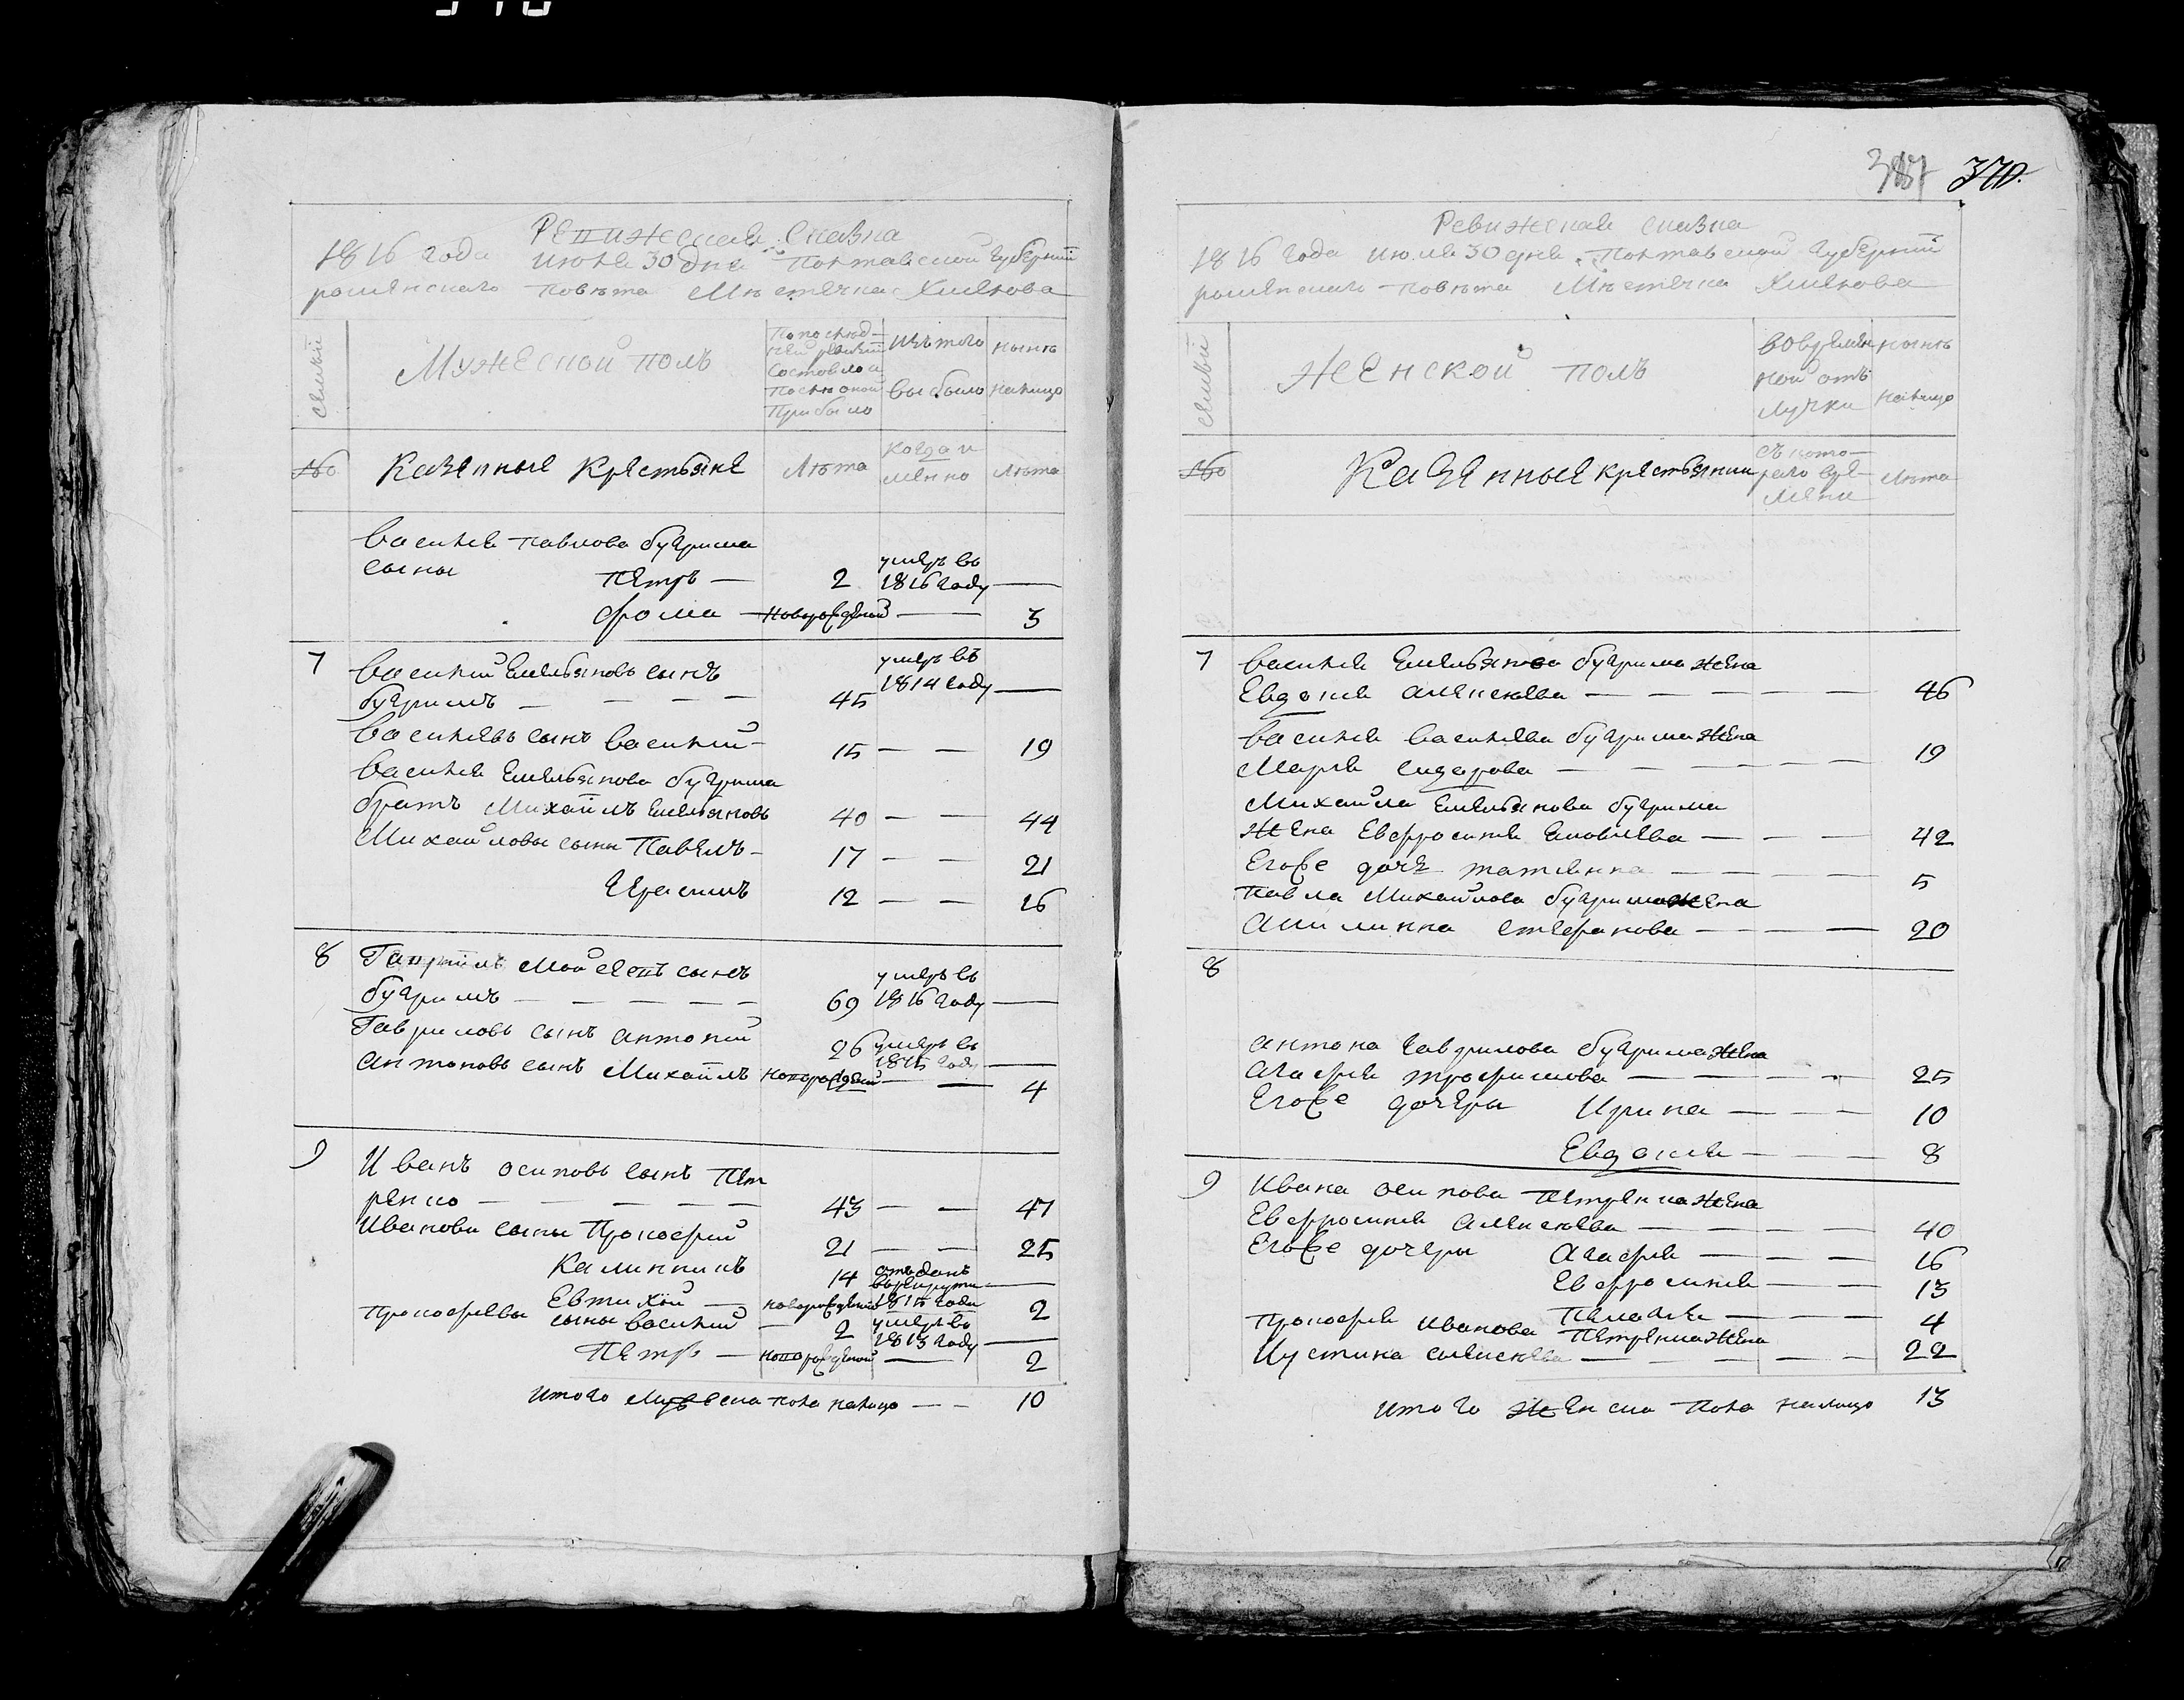 Ревижская сказка
1816 года июля 30 дня Полтавской губерниі
роменского повѣта Мѣстечка Хмелова
семьи
Мужеской полъ
По послѣд-
ней ревизіи
состояло и
после оной
прибыло
Изъ того
выбыло
нынѣ
налицо
№
Казенные Крестьяне
Лѣта
когда и
менно
Лѣта
василія павлова бугрима
сыны Петръ — 2 умеръ въ
1816 году —
фома — новорожденый — 3
7 василий Емельяновъ сынъ
бугримъ — — — — 45 умеръ въ
1814 году —
василіевъ сынъ василий — 15 — — 19
василия Емельянова бугрима
братъ Михайлъ Емельяновъ 40 — — 44
Михайловы сыны Павелъ — 17 — — 21
Герасимъ 12 — — 16
8 Гавріилъ Мойсеевъ сынъ
бугримъ — — — — — 69 умеръ въ
1816 году —
Гавриловъ сынъ антоний 26 умеръ въ
1815 году —
антоновъ сынъ Михайлъ новорожденый — — 4
9 Иванъ осиповъ сынъ Пет
ренко — — — — — 43 — — 47
Ивановы сыны Прокофий 21 — — 25
Калинникъ 14 отъданъ
въ рекруты
1815 году —
Евтихій — новорожденый 2
прокофиевы сыны василий — 2 умеръ въ
1813 году —
Петръ — новорожденый — 2
итого Мужеска пола налицо — — 10
387 370.
Ревижская сказка
1816 года июля 30 дня Полтавской губерниі
роменского повѣта Мѣстечка Хмелова
семьи
Женской полъ
во времен
ной отъ
лучки
нынѣ
налицо
№
Казенные крестьянки
съ кото-
рого вре-
мени
Лѣта
7 василия Емельянова бугрима жена
Евдокия алексѣева — — — — — 46
василия василиева бугрима жена
Марія сидорова — — — — — 19
Михайла Емельянова бугрима
жена Евфросиния Яковлева — — — 42
Егоже дочь татиянна — — — — 5
павла Михайлова бугрима жена
акилинна стефанова — — — — 20
8
антона гаврилова бугрима жена
агафия трофимова — — — — 25
Егоже дочери Ирина — — — 10
Евдокия — — — 8
9 Ивана осипова Петренка жена
Евфросиния алексѣева — — — — 40
Егоже дочери Агафия — — — 16
Евфросиния — — — 13
Пелагия — — — 4
прокофия иванова Петренка жена
Иустина алексѣева — — — — — 22
итого женска пола налицо 13